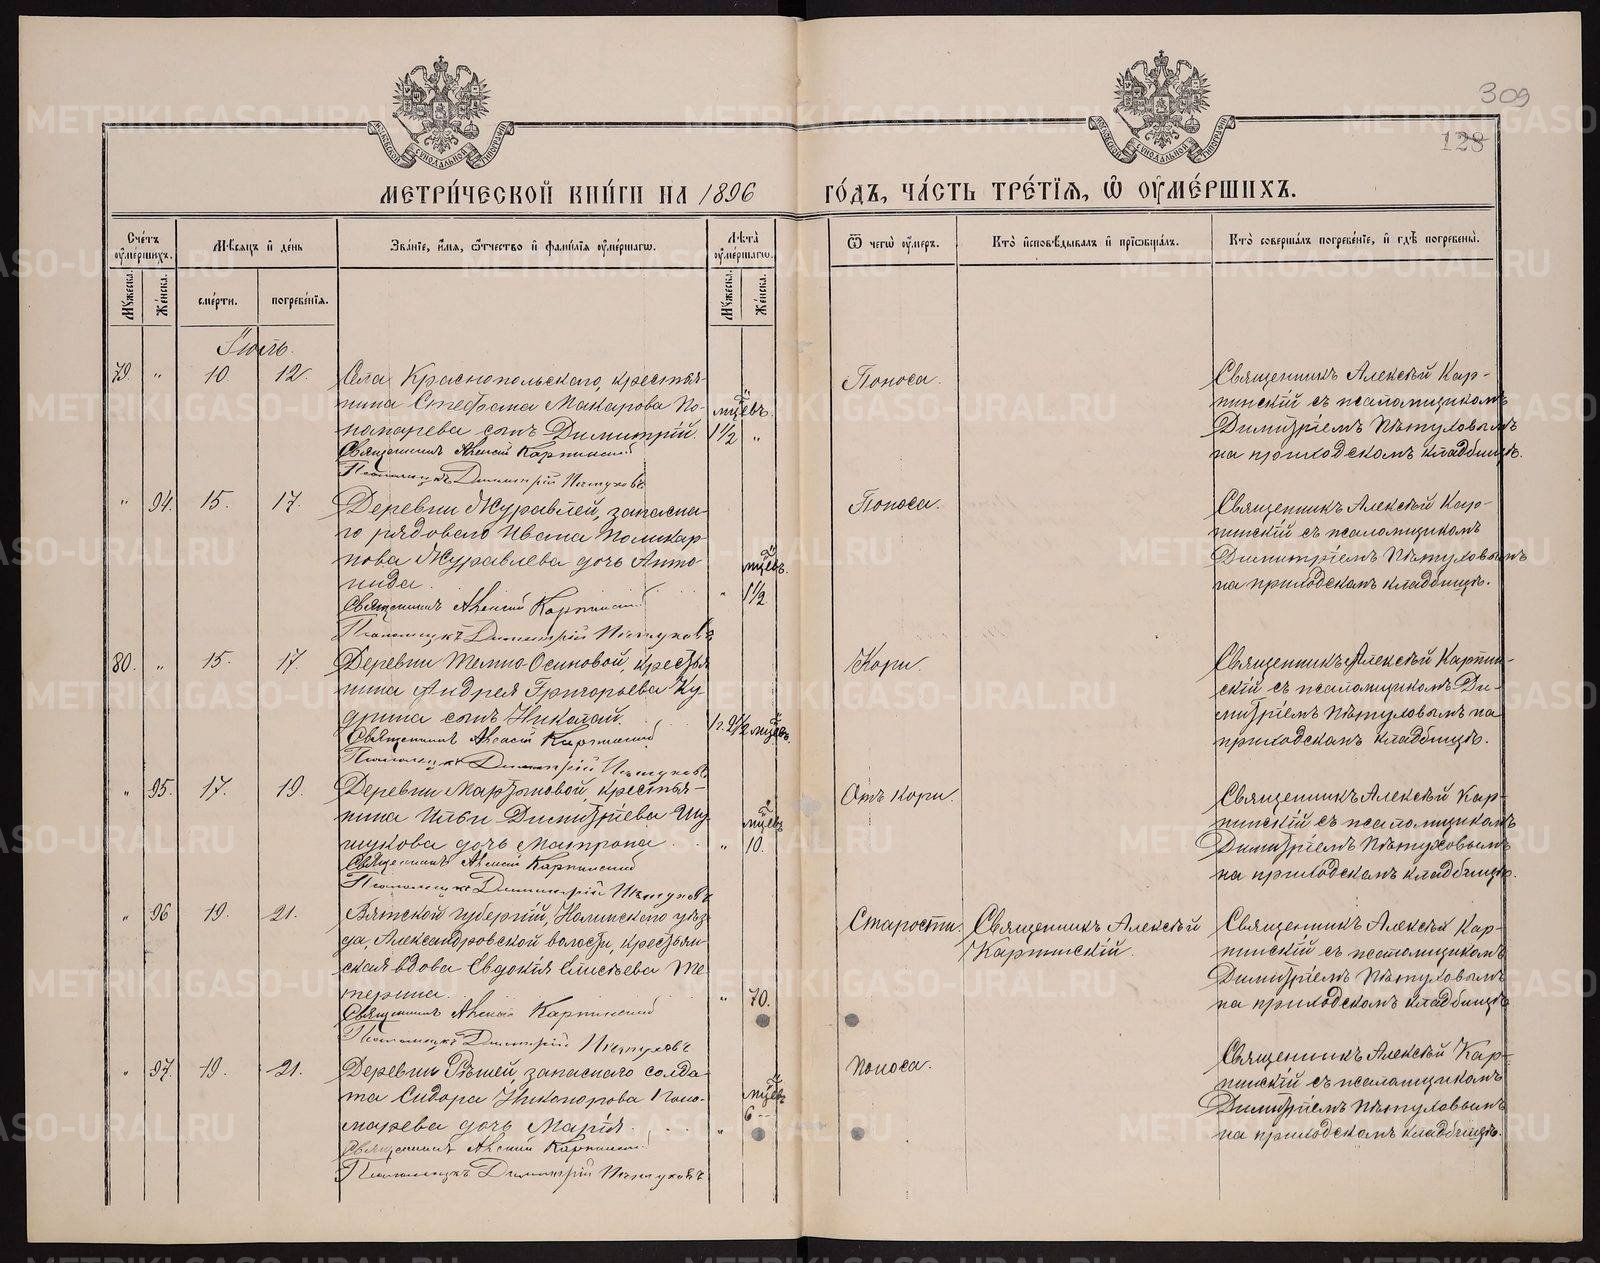 309
128
МЕТРИ́ЧЕСКОЙ КНИ́ГИ НА 1896 ГО́ДЪ, ЧА́СТЬ ТРЕ́ТІЯ, Ѡ ОУМЕ́РШИХЪ.
Сче́тъ оумершихъ.
Мужеска.
Же́нска.
Мѣсяцъ и де́нь
сме́рти.
погребе́нія.
Зва́ніе, и́мя, ѻ́тчество и фами́лія оуме́ршагѡ.
Лѣта оуме́ршагѡ.
Мужеска.
Же́нска.
Ѿ чегѡ̀ оу́меръ.
Кто̀ исповѣ́дывалъ и пріѡбща́лъ.
Кто̀ соверша́лъ погребе́ніе, и гдѣ̀ погребены̀.
Іюль.
79. " 10. 12.
Села Краснопольскаго, крестья-
нина Стефана Макарова По-
номарева сынъ Димитрій.
мцевъ.
1½ "
Священникъ Алексій Карпинскій
Псаломщикъ Димитрій Пѣтуховъ
Поноса.
Священникъ Алексѣй Кар-
пинскій съ псаломщикомъ
Димитріемъ Пѣтуховымъ
на приходскомъ кладбищѣ.
" 94. 15. 17.
Деревни Журавлей, запасна-
го рядового Ивана Поликар
пова Журавлева дочь Анто
нида.
мцевъ.
" 1½
Священникъ Алексій Карпинскій
Псаломщикъ Димитрій Пѣтуховъ
Поноса.
Священникъ Алексѣй Кар-
пинскій съ псаломщикомъ
Димитріемъ Пѣтуховымъ
на приходскомъ кладбищѣ.
80. " 15. 17.
Деревни Темно-Осиновой, крестья
нина Андрея Григорьева Ку
дрина сынъ Николай.
мцевъ.
Священникъ Алексій Карпинскій
Псаломщикъ Димитрій Пѣтуховъ
Кори.
Священникъ Алексѣй Карпин-
скій съ псаломщикомъ Ди-
митріемъ Пѣтуховымъ на
приходскомъ кладбищѣ.
" 95. 17. 19.
Деревни Мартыновой, крестья-
нина Ильи Димитріева
дочь Матрона.
мцевъ
" 10.
Священникъ Алексій Карпинскій
Псаломщикъ Димитрій Пѣтуховъ
Отъ кори.
Священникъ Алексѣй Кар-
пинскій съ псаломщикомъ
Димитріемъ Пѣтуховымъ
на приходскомъ кладбищѣ.
" 96 19. 21.
Вятской губерніи, Нолинскаго уѣз
да, Александровской волости, крестьян
ская вдова Евдокія Елисѣева Те
терина.
" 70.
Священникъ Алексій Карпинскій
Псаломщикъ Димитрій Пѣтуховъ
Старости.
Священникъ Алексѣй
Карпинскій.
Священникъ Алексѣй Кар-
пинскій съ псаломщикомъ
Димитріемъ Пѣтуховымъ
на приходскомъ кладбищѣ
" 97. 19. 21.
Деревни Рѣшей, запаснаго солда
та Сидора Никонорова Поно-
марева дочь Марія.
мцевъ
" 6
Священникъ Алексій Карпинскій
Псаломщикъ Димитрій Пѣтуховъ
Поноса.
Священникъ Алексѣй Кар-
пинскій съ псаломщикомъ
Димитріемъ Пѣтуховымъ
на приходскомъ кладбищѣ.
METRIKI.GASO-URAL.RU